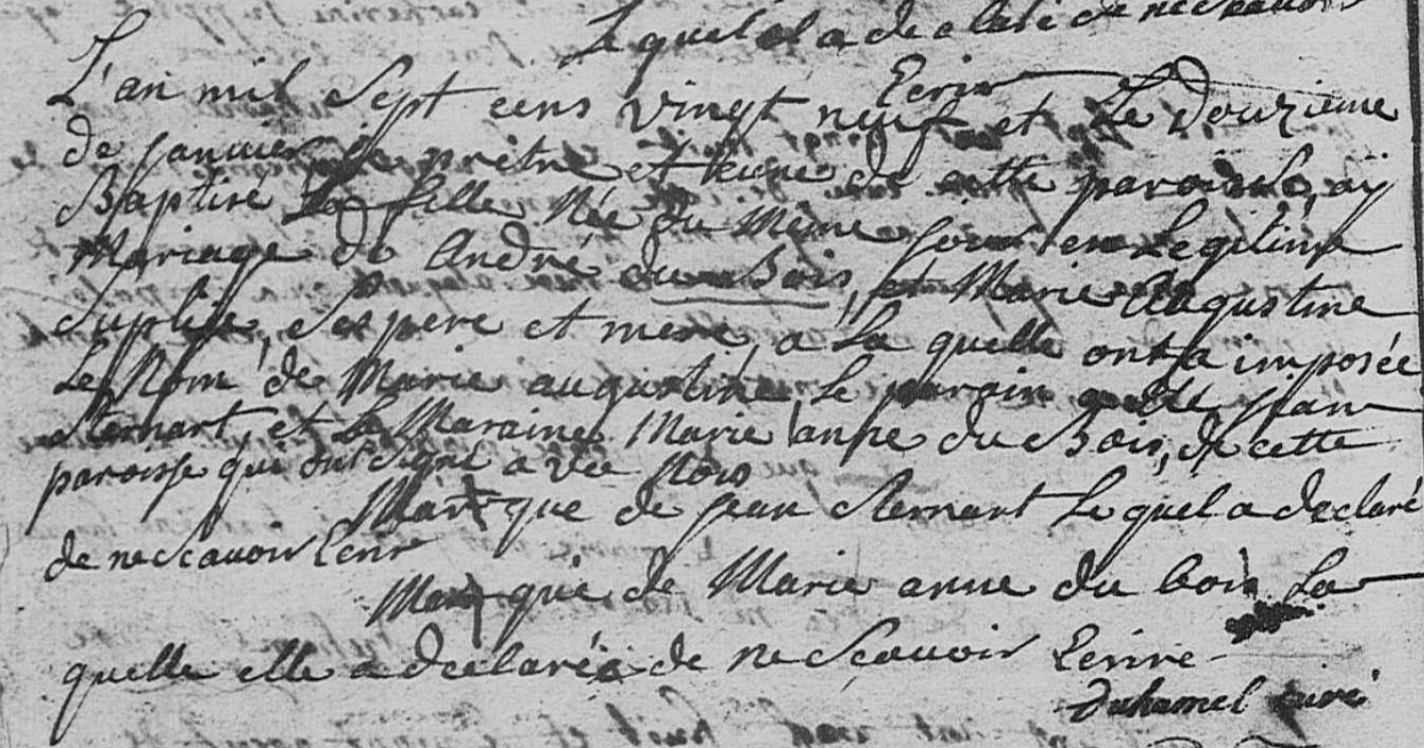 Le quel a declaré de ne scavoir
Ecrir
L'an mil sept cens vingt neuf et Le Douzieme
de janvier je prêtre et curé de cette paroisse, aÿ
Baptisé La fille Née du Même jour en Legitime
Mariage de André du Bois, et Marie Augustine
ses pere et mere, a La quelle ont a imposée
Le Nom de Marie augustine, Le parain jean
sternart, et La Maraine Marie anne du Bois, de cette
paroisse qui ont signé avec Nous
Marque de jean sternart Le quel a declaré
de ne scavoir Ecrir
Marque de Marie anne du bois La
quelle elle a declarée de ne scavoir Ecrire
duhamel curé